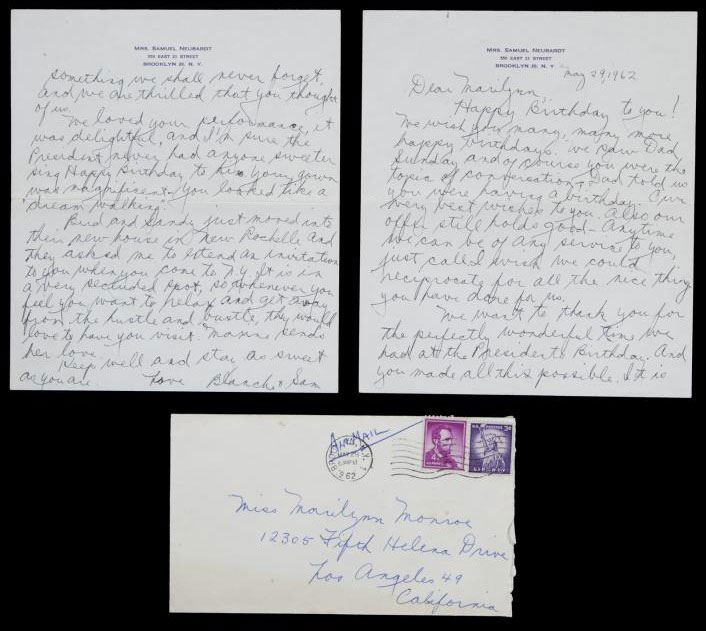 MRS. SAMUEL NEUBARDT
BROOKLYN 26, N. Y.
May 29, 1962
Dear Marilynn,
Happy Birthday to you!
We wish you many, many more
happy birthdays. We saw Dad,
Sunday and of course you were the
topic of conversation. Dad told us
you were having a birthday. Our
very best wishes to you. Also our
offer still holds good - Anytime
we can be of any service to you,
just call. I wish we could
reciprocate for all the nice thing
you have done for us.
We want to thank you for
the perfectly wonderful time we
had at the President's Birthday. And
you made all this possible. It is
MRS. SAMUEL NEUBARDT
BROOKLYN 26, N. Y.
something we shall never forget,
and we are thrilled that you thought
of us.
We loved your performance, it
was delightful, and I'm sure the
President never had anyone sweeter
sing Happy Birthday to him. Your gown
was magnificent. You looked like a
"dream walking".
Bird and Sandy just moved into
their new house in New Rochelle and
they asked me to extend an invitation
to you when you come to N.Y. It is in
a very secluded spot, so whenever you
feel you want to relax and get away
from the hustle and bustle, they would
love to have you visit. Mamma sends
her love.
Keep well and stay as sweet
as you are. Love Blanche & Sam
Air Mail
MAY 29
1962
4¢
U.S. POSTAGE 3¢
LIBERTY
Miss Marilynn Monroe
12305 Fifth Helena Drive
Los Angeles 49
California